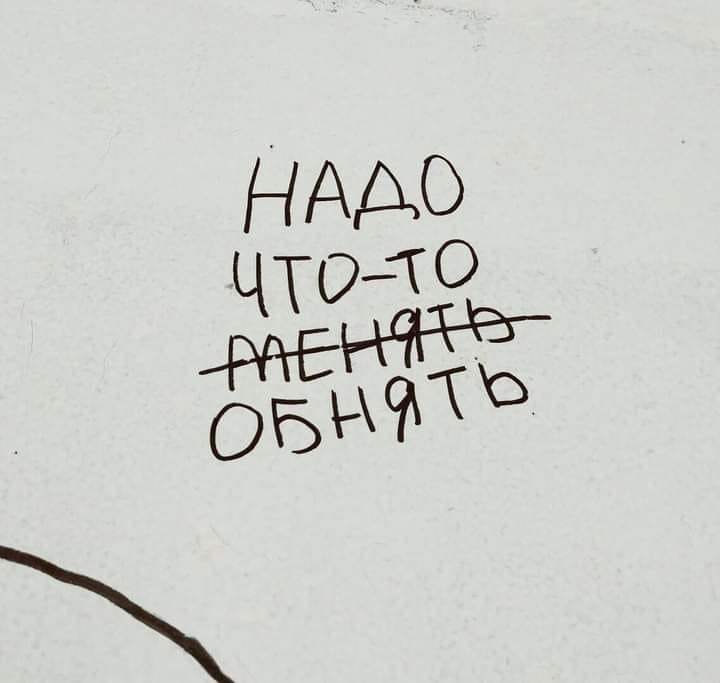 НАДО
ЧТО-ТО
МЕНЯТЬ
ОБНЯТЬ